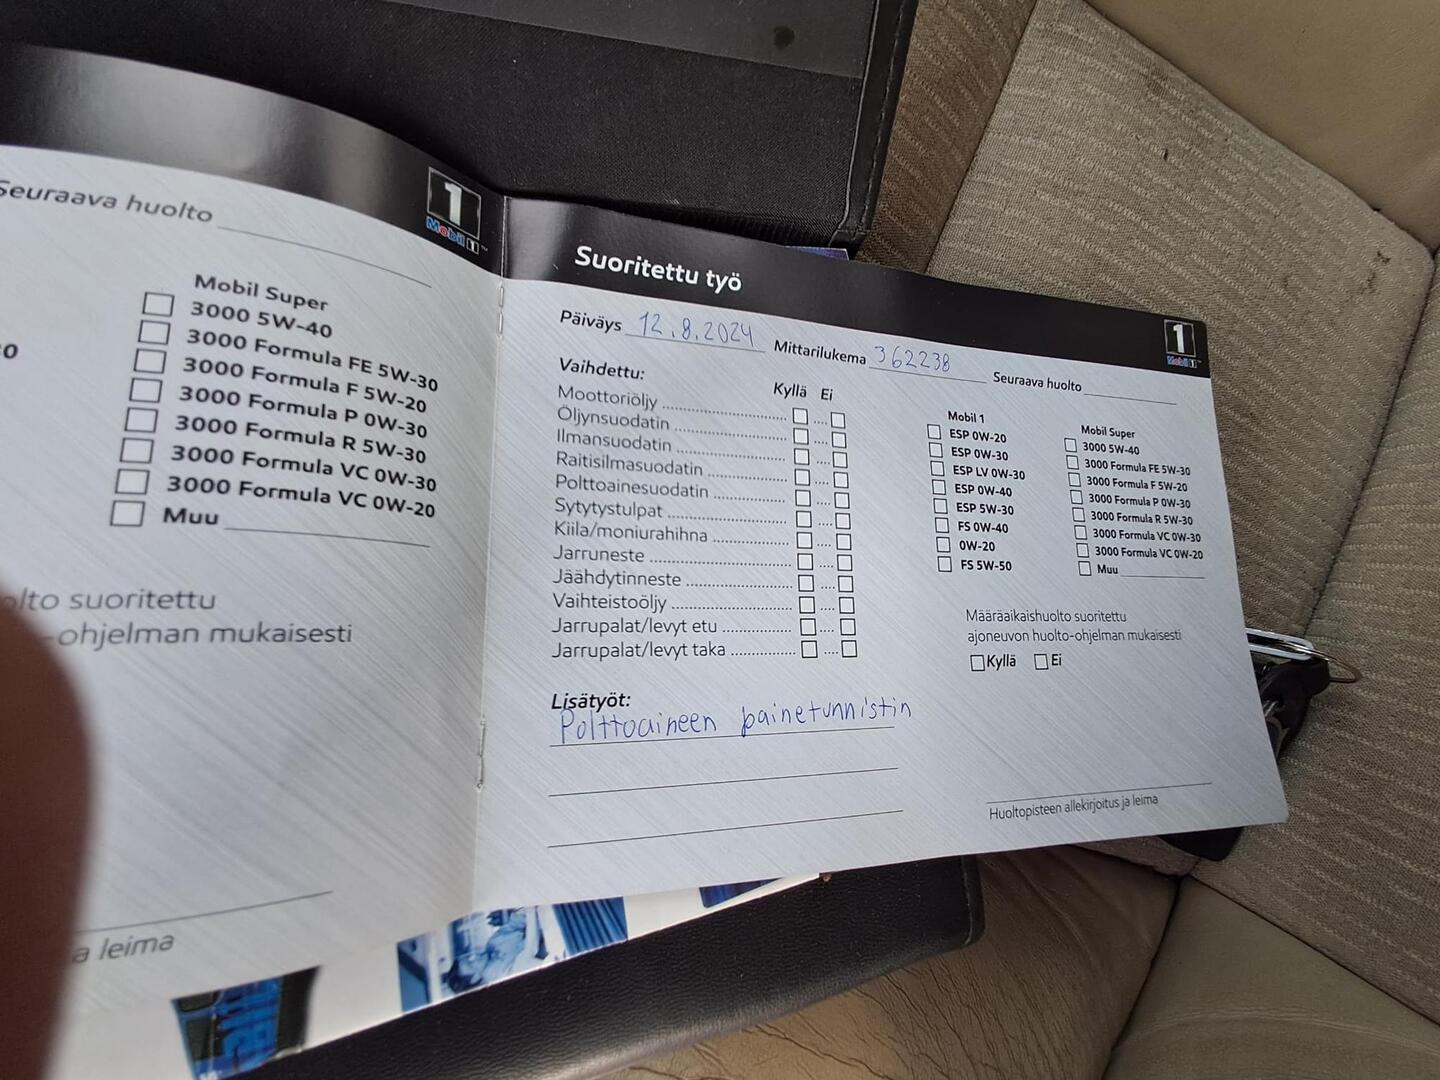 Seuraava huolto
1
Mobil 1
Mobil Super
3000 5W-40
3000 Formula FE 5W-30
3000 Formula F 5W-20
3000 Formula P 0W-30
3000 Formula R 5W-30
3000 Formula VC 0W-30
3000 Formula VC 0W-20
Muu
suoritettu
-ohjelman mukaisesti
leima
Suoritettu työ
1
Mobil 1
Päiväys 12.8.2024 Mittarilukema 362238 Seuraava huolto
Vaihdettu: Kyllä Ei
Moottoriöljy
Öljynsuodatin
Ilmansuodatin
Raitisilmasuodatin
Polttoainesuodatin
Sytytystulpat
Kiila/moniurahihna
Jarruneste
Jäähdytinneste
Vaihteistoöljy
Jarrupalat/levyt etu
Jarrupalat/levyt taka
Mobil 1
ESP 0W-20
ESP 0W-30
ESP LV 0W-30
ESP 0W-40
ESP 5W-30
FS 0W-40
0W-20
FS 5W-50
Mobil Super
3000 5W-40
3000 Formula FE 5W-30
3000 Formula F 5W-20
3000 Formula P 0W-30
3000 Formula R 5W-30
3000 Formula VC 0W-30
3000 Formula VC 0W-20
Muu
Määräaikaishuolto suoritettu
ajoneuvon huolto-ohjelman mukaisesti
Kyllä Ei
Lisätyöt:
Polttoaineen painetunnistin
Huoltopisteen allekirjoitus ja leima